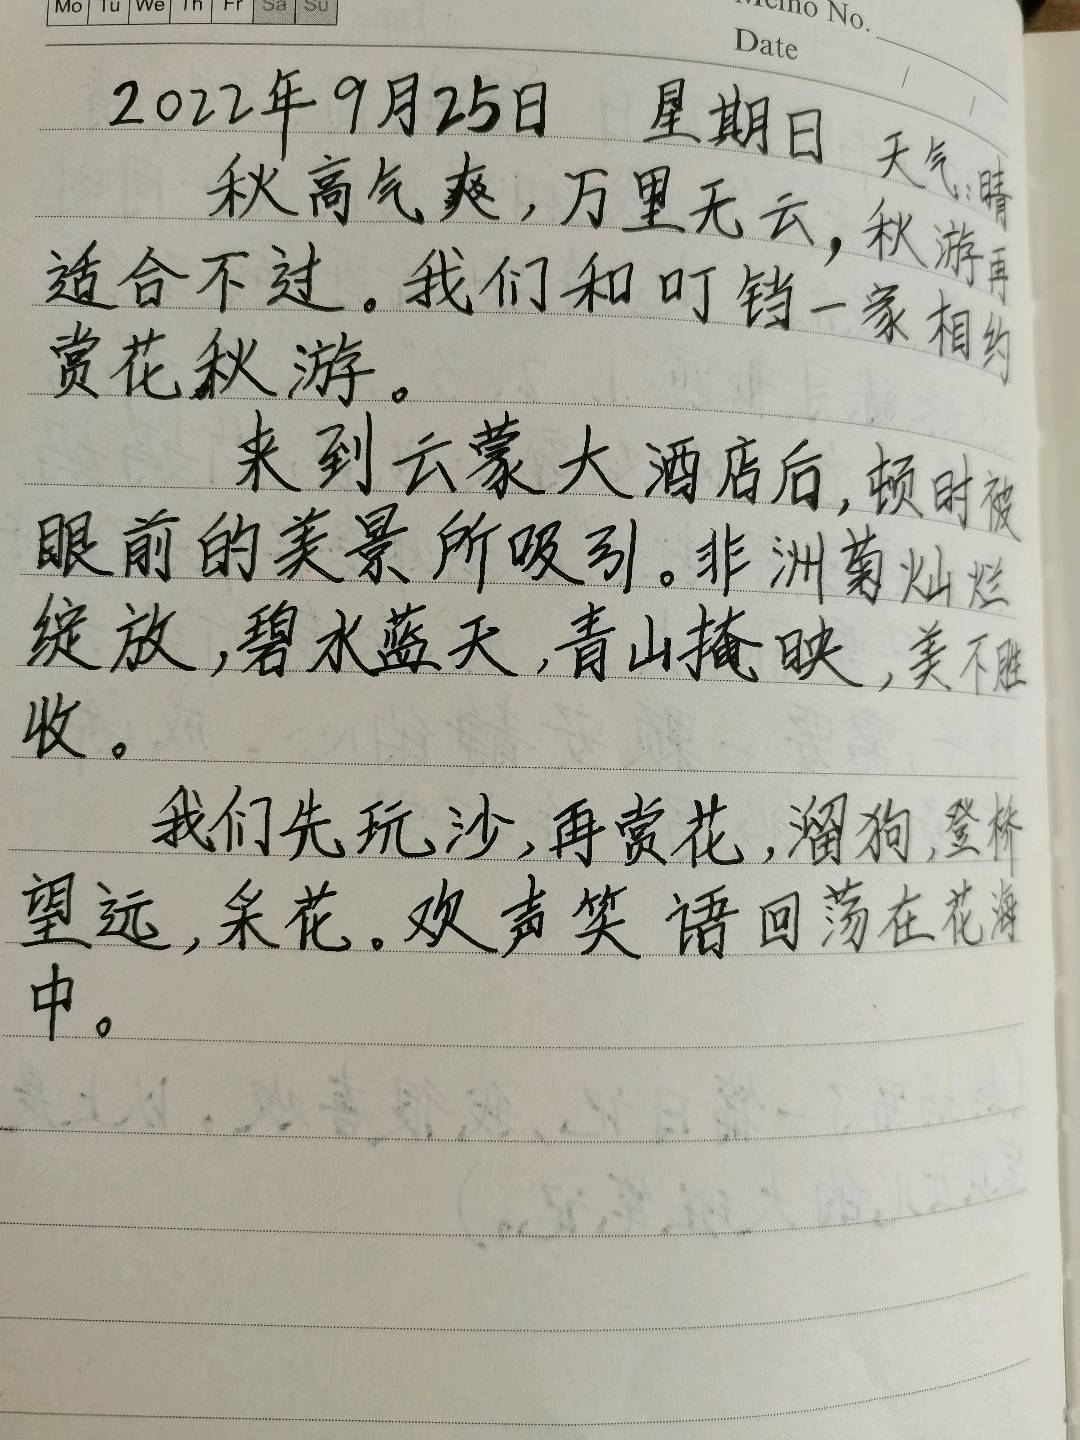 Mo Tu We Th Fr Sa Su
Memo No.
Date / /
2022年9月25日 星期日 天气:晴
秋高气爽,万里无云,秋游再
适合不过。我们和叮铛一家相约
赏花秋游。
来到云蒙大酒店后,顿时被
眼前的美景所吸引。非洲菊灿烂
绽放,碧水蓝天,青山掩映,美不胜
收。
我们先玩沙,再赏花,溜狗,登桥
望远,采花。欢声笑语回荡在花海
中。